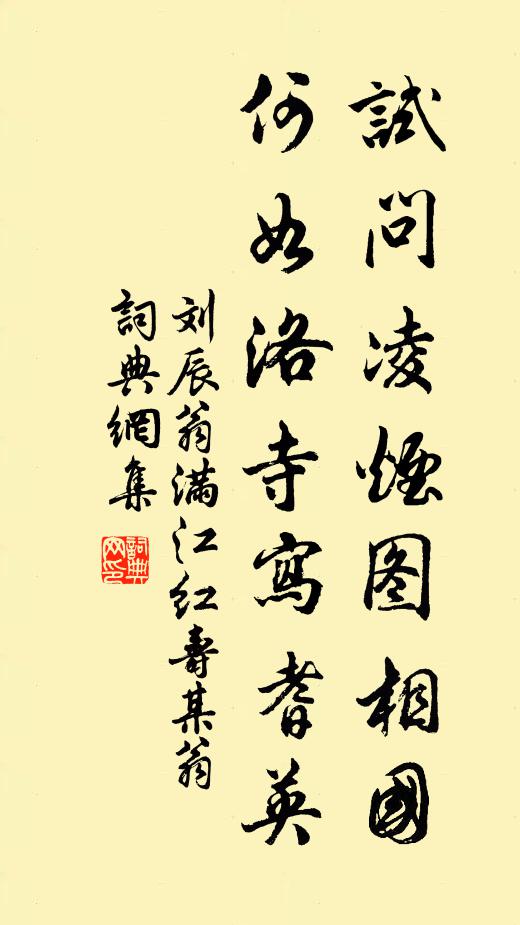 試問凌煙图相國
何如洛寺寫耆英
刘辰翁满江红壽某翁
詞典網集
詞典网印